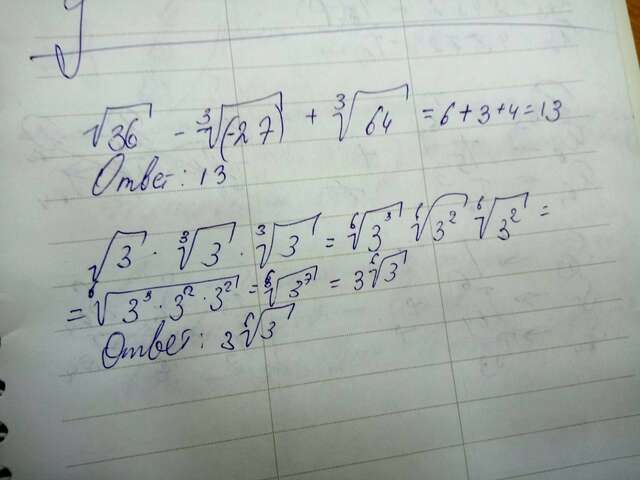 √36 - ∛(-27) + ∛64 = 6+3+4=13
Ответ: 13
√3 · ∛3 · ∛3 = ⁶√3³ ⁶√3² ⁶√3² =
= ⁶√3³·3²·3² = ⁶√3⁷ = 3⁶√3
Ответ: 3⁶√3